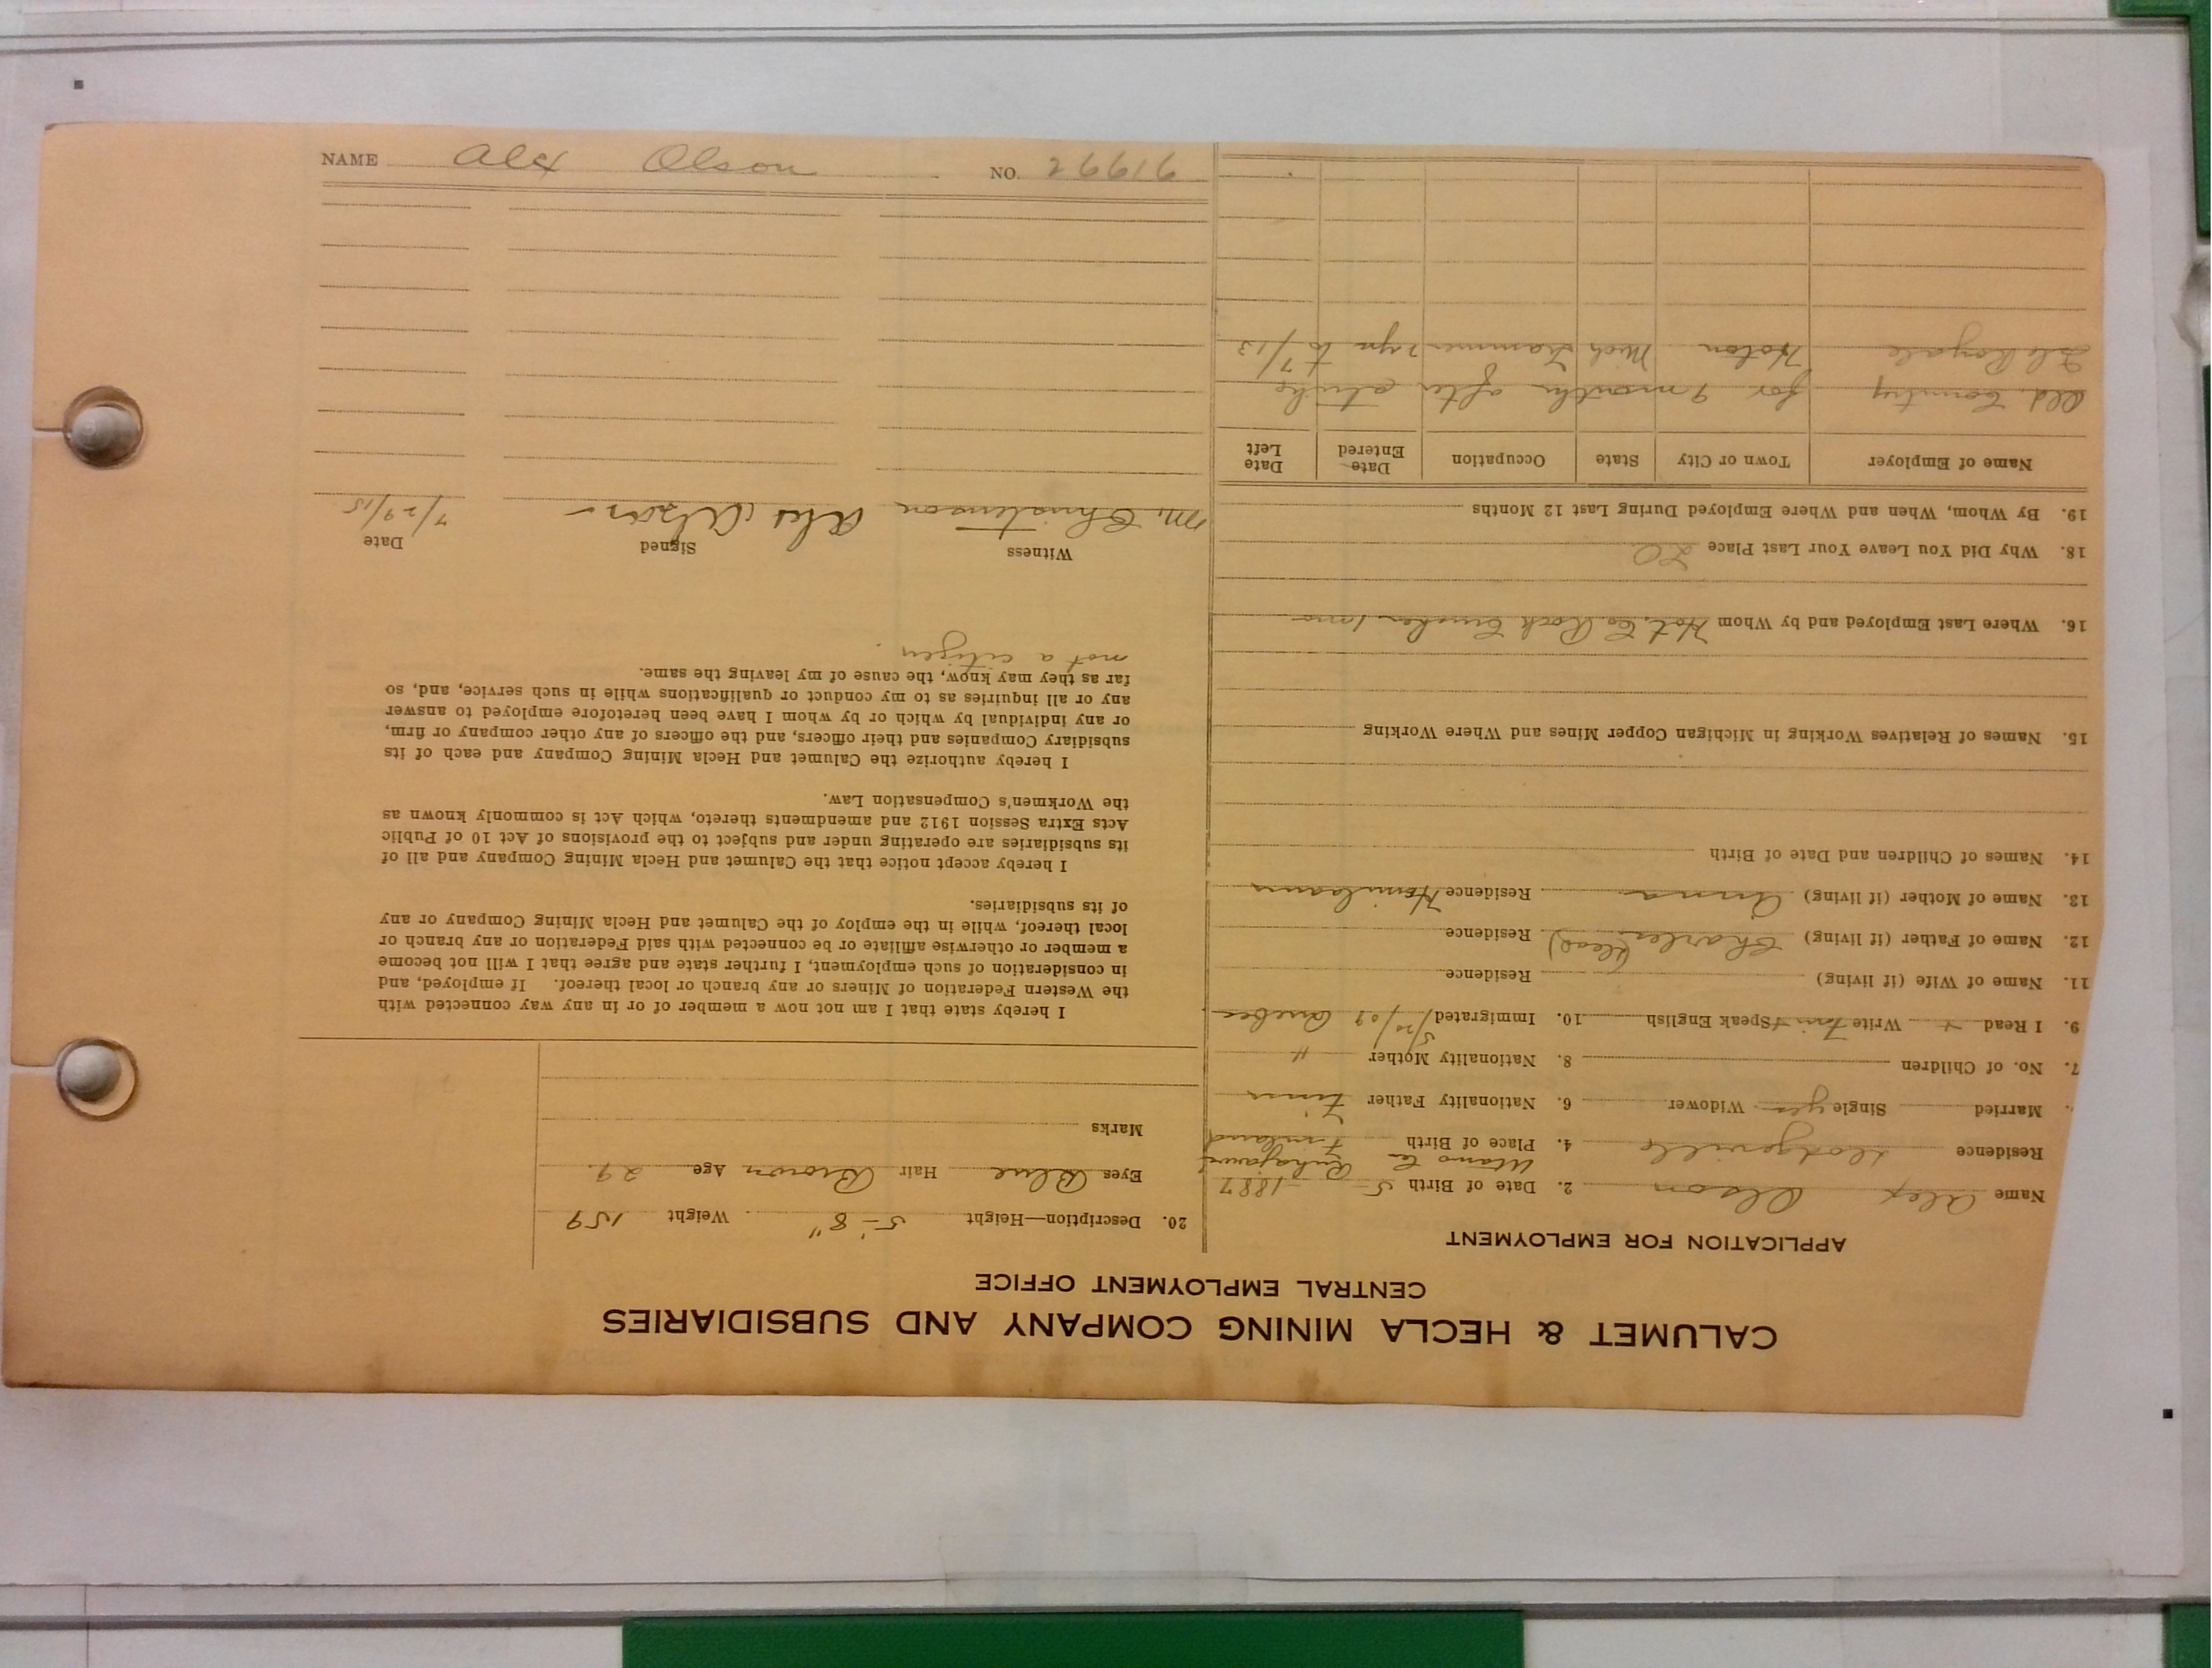 CALUMET & HECLA MINING COMPANY AND SUBSIDIARIES
CENTRAL EMPLOYMENT OFFICE
APPLICATION FOR EMPLOYMENT
Name Alex Olson 2. Date of Birth 5 - 1887
Residence Dodgeville 4. Place of Birth Finland
Married Single yes Widower 6. Nationality Father Finn
7. No. of Children 8. Nationality Mother "
9. I Read + Write Finn + Speak English 10. Immigrated 5/20/09 Quebec
11. Name of Wife (if living) Residence
12. Name of Father (if living) Charles (dead) Residence
13. Name of Mother (if living) Anna Residence
14. Names of Children and Date of Birth
15. Names of Relatives Working in Michigan Copper Mines and Where Working
16. Where Last Employed and by Whom Hot. Co Rock Crusher
18. Why Did You Leave Your Last Place LO
19. By Whom, When and Where Employed During Last 12 Months
Name of Employer Town or City State Occupation Date Entered Date Left
Old Country for 9 months after strike
Isle Royale Hoton Mich Trammer 2 yrs to 7/13
20. Description—Height 5'-8" Weight 159
Eyes Blue Hair Brown Age 29
Marks
I hereby state that I am not now a member of or in any way connected with
the Western Federation of Miners or any branch or local thereof. If employed, and
in consideration of such employment, I further state and agree that I will not become
a member or otherwise affiliate or be connected with said Federation or any branch or
local thereof, while in the employ of the Calumet and Hecla Mining Company or any
of its subsidiaries.
I hereby accept notice that the Calumet and Hecla Mining Company and all of
its subsidiaries are operating under and subject to the provisions of Act 10 of Public
Acts Extra Session 1912 and amendments thereto, which Act is commonly known as
the Workmen's Compensation Law.
I hereby authorize the Calumet and Hecla Mining Company and each of its
subsidiary Companies and their officers, and the officers of any other company or firm,
or any individual by which or by whom I have been heretofore employed to answer
any or all inquiries as to my conduct or qualifications while in such service, and, so
far as they may know, the cause of my leaving the same.
not a citizen.
Witness Signed Date
M. Christenson Alex Olson 7/29/15
NAME Alex Olson NO. 26616